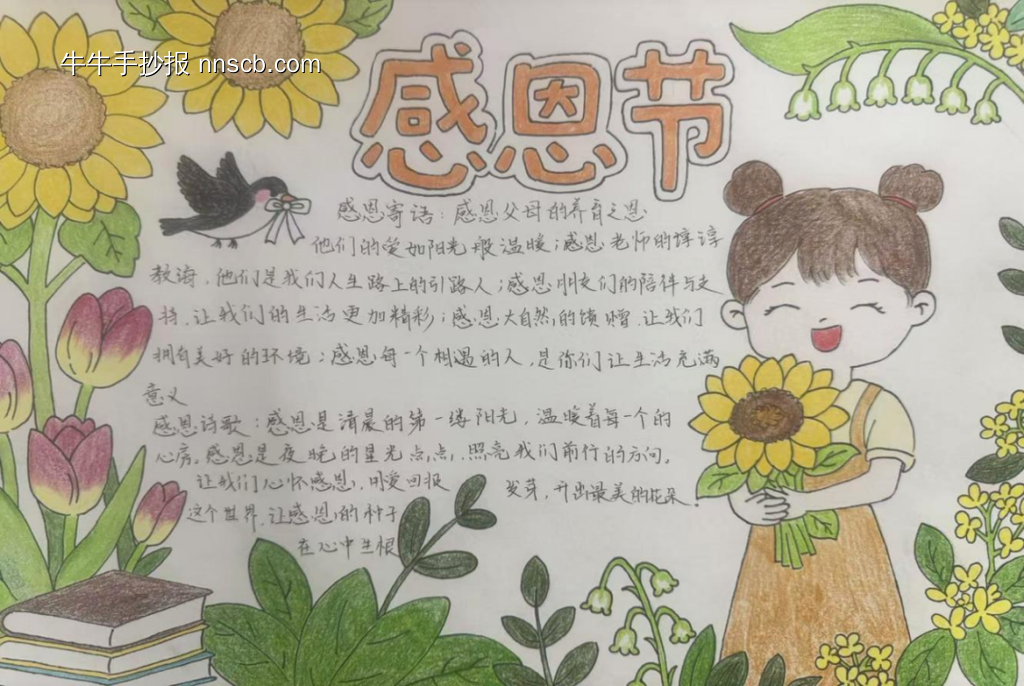 牛牛手抄报 nnscb.com
感恩节
感恩寄语：感恩父母的养育之恩
他们的爱如阳光般温暖；感恩老师的谆谆
教诲，他们是我们人生路上的引路人；感恩朋友们的陪伴与支
持，让我们的生活更加精彩；感恩大自然的馈赠，让我们
拥有美好的环境；感恩每一个相遇的人，是你们让生活充满
意义
感恩诗歌：感恩是清晨的第一缕阳光，温暖着每一个的
心房。感恩是夜晚的星光点点，照亮我们前行的方向。
让我们心怀感恩，用爱回报
这个世界，让感恩的种子
在心中生根
发芽，开出最美的花朵。